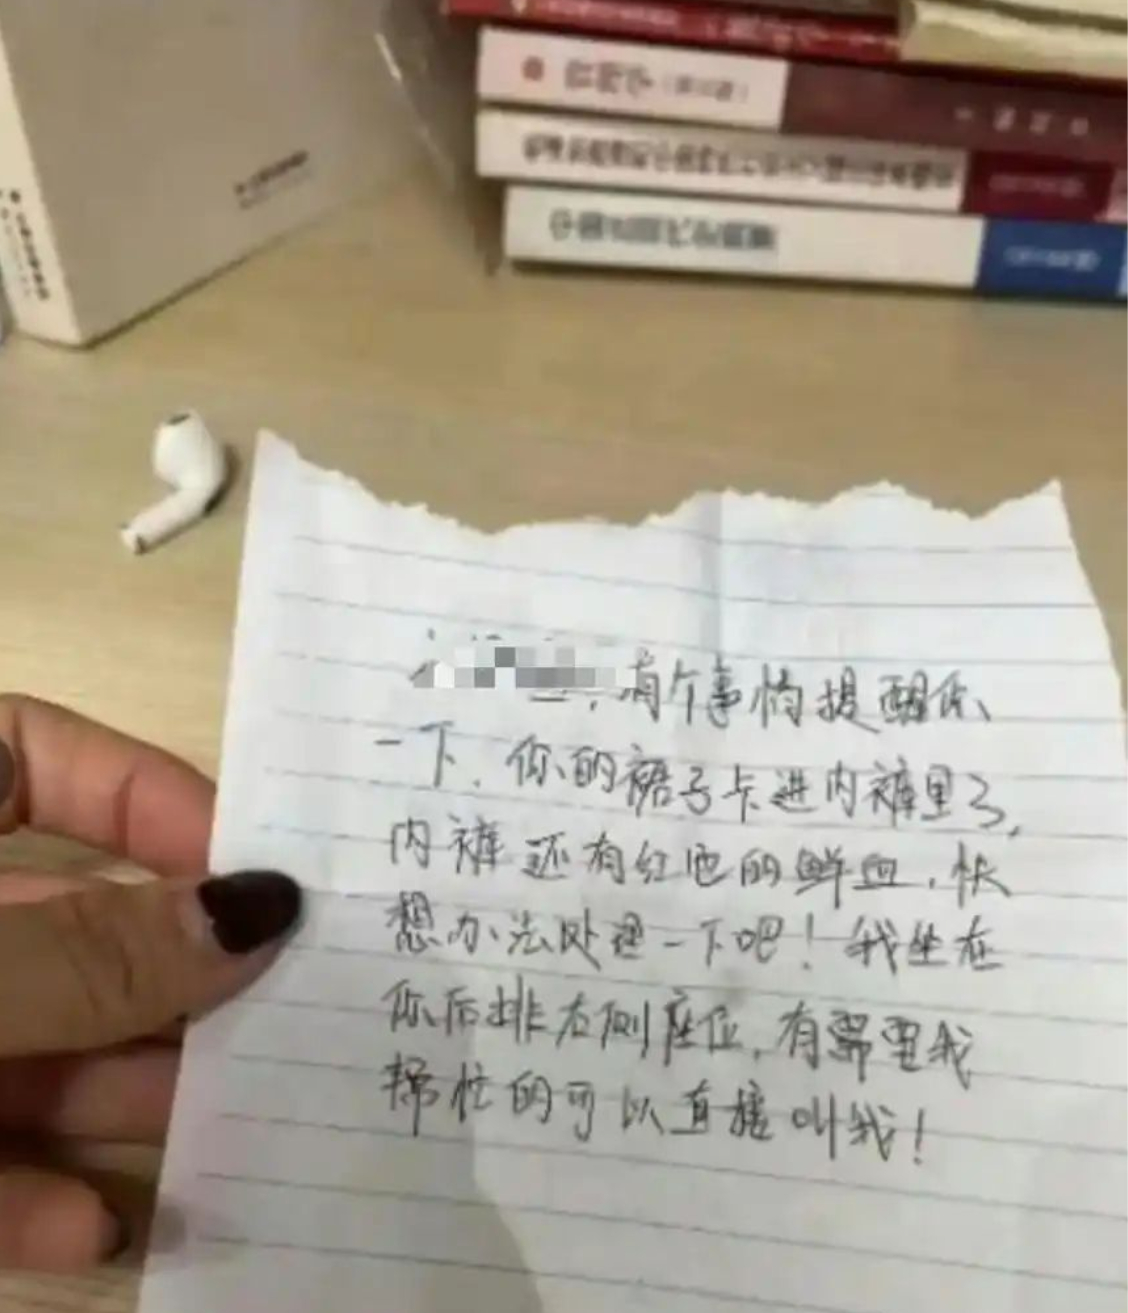 管理学
中国近现代史纲要
，有个事情提醒你
一下，你的裙子卡进内裤里了，
内裤还有红色的鲜血，快
想办法处理一下吧！我坐在
你后排右侧座位，有需要我
帮忙的可以直接叫我！